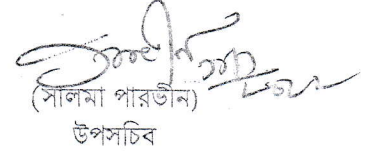 (সালমা পারভীন)
উপসচিব